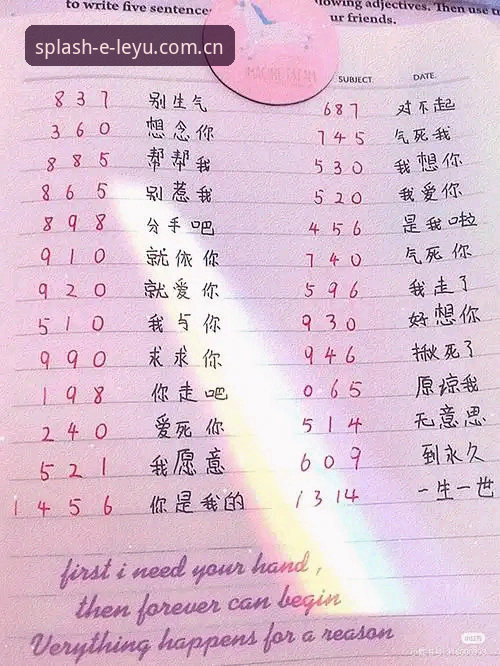 to write five sentence
lowing adjectives. Then use t
ur friends.
splash-e-leyu.com.cn
SUBJECT. DATE.
837 别生气 687 对不起
360 想念你 745 气死我
885 帮帮我 530 我想你
865 别惹我 520 我爱你
898 分手吧 456 是我啦
910 就依你 740 气死你
920 就爱你 596 我走了
510 我与你 930 好想你
990 求求你 946 揪死了
198 你走吧 065 原谅我
240 爱死你 514 无意思
521 我愿意 609 到永久
1456 你是我的 1314 一生一世
first i need your hand,
then forever can begin
Verything happens for a reason
小红书